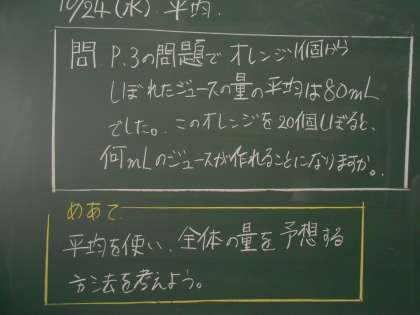 10/24(水) 平均.
問 P.3の問題でオレンジ1個から
しぼれたジュースの量の平均は80mL
でした。このオレンジを20個しぼると、
何mLのジュースが作れることになりますか。
めあて
平均を使い、全体の量を予想する
方法を考えよう。